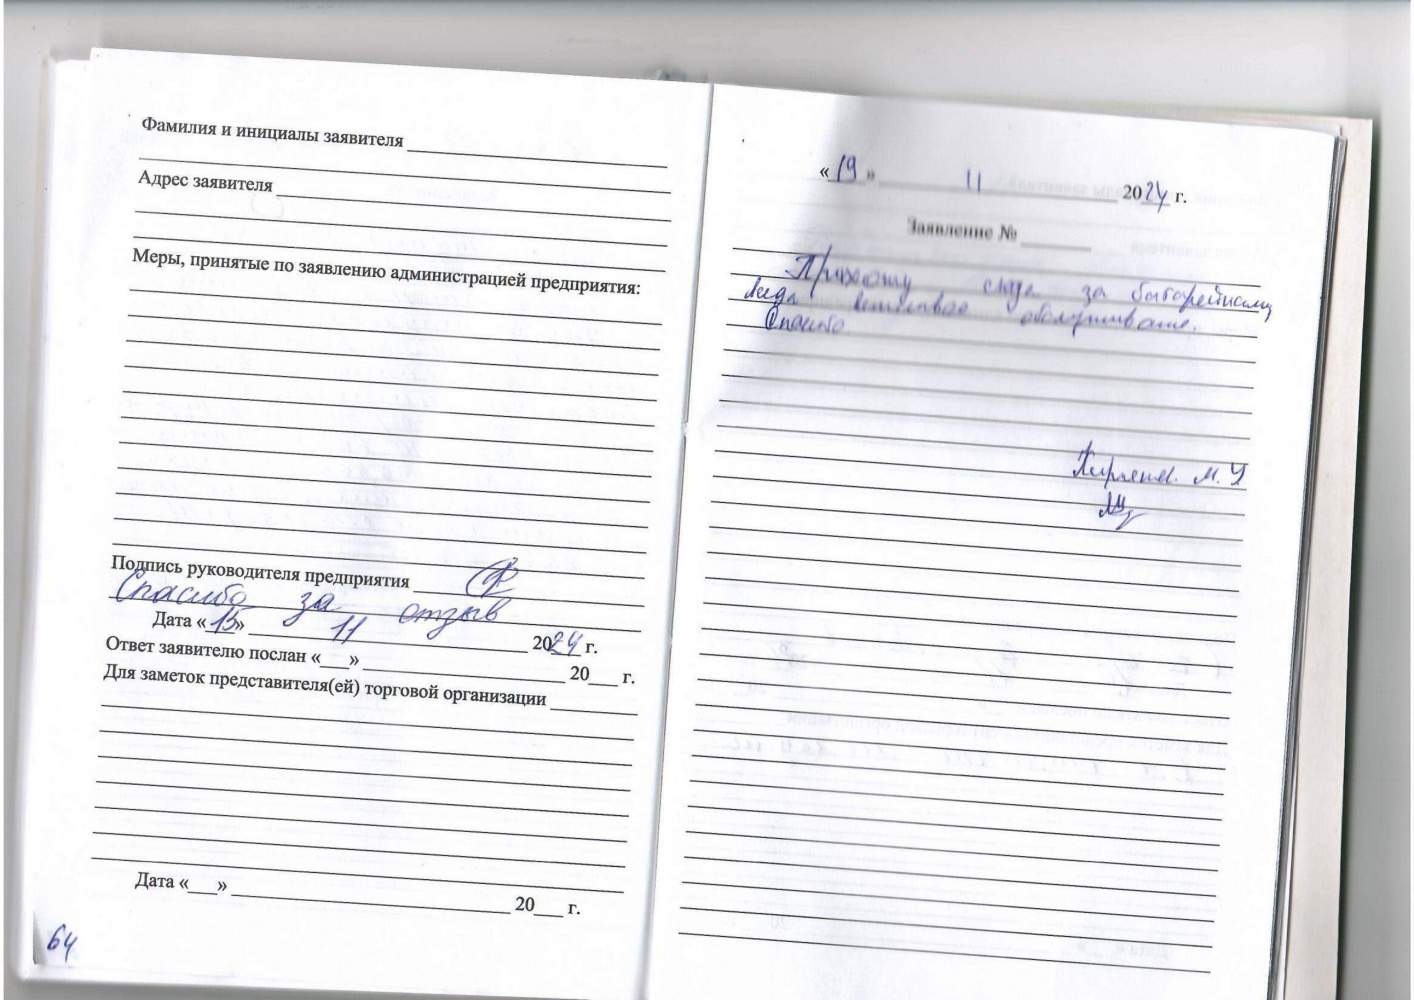 Фамилия и инициалы заявителя
Адрес заявителя
Меры, принятые по заявлению администрацией предприятия:
Подпись руководителя предприятия
Спасибо за отзыв
Дата «15» 11 2024 г.
Ответ заявителю послан «___» 20___ г.
Для заметок представителя(ей) торговой организации
Дата «___» 20___ г.
64
«19» 11 2024 г.
Заявление №
Прихожу сюда за батарейками
вежливое обслуживание.
Спасибо
М.